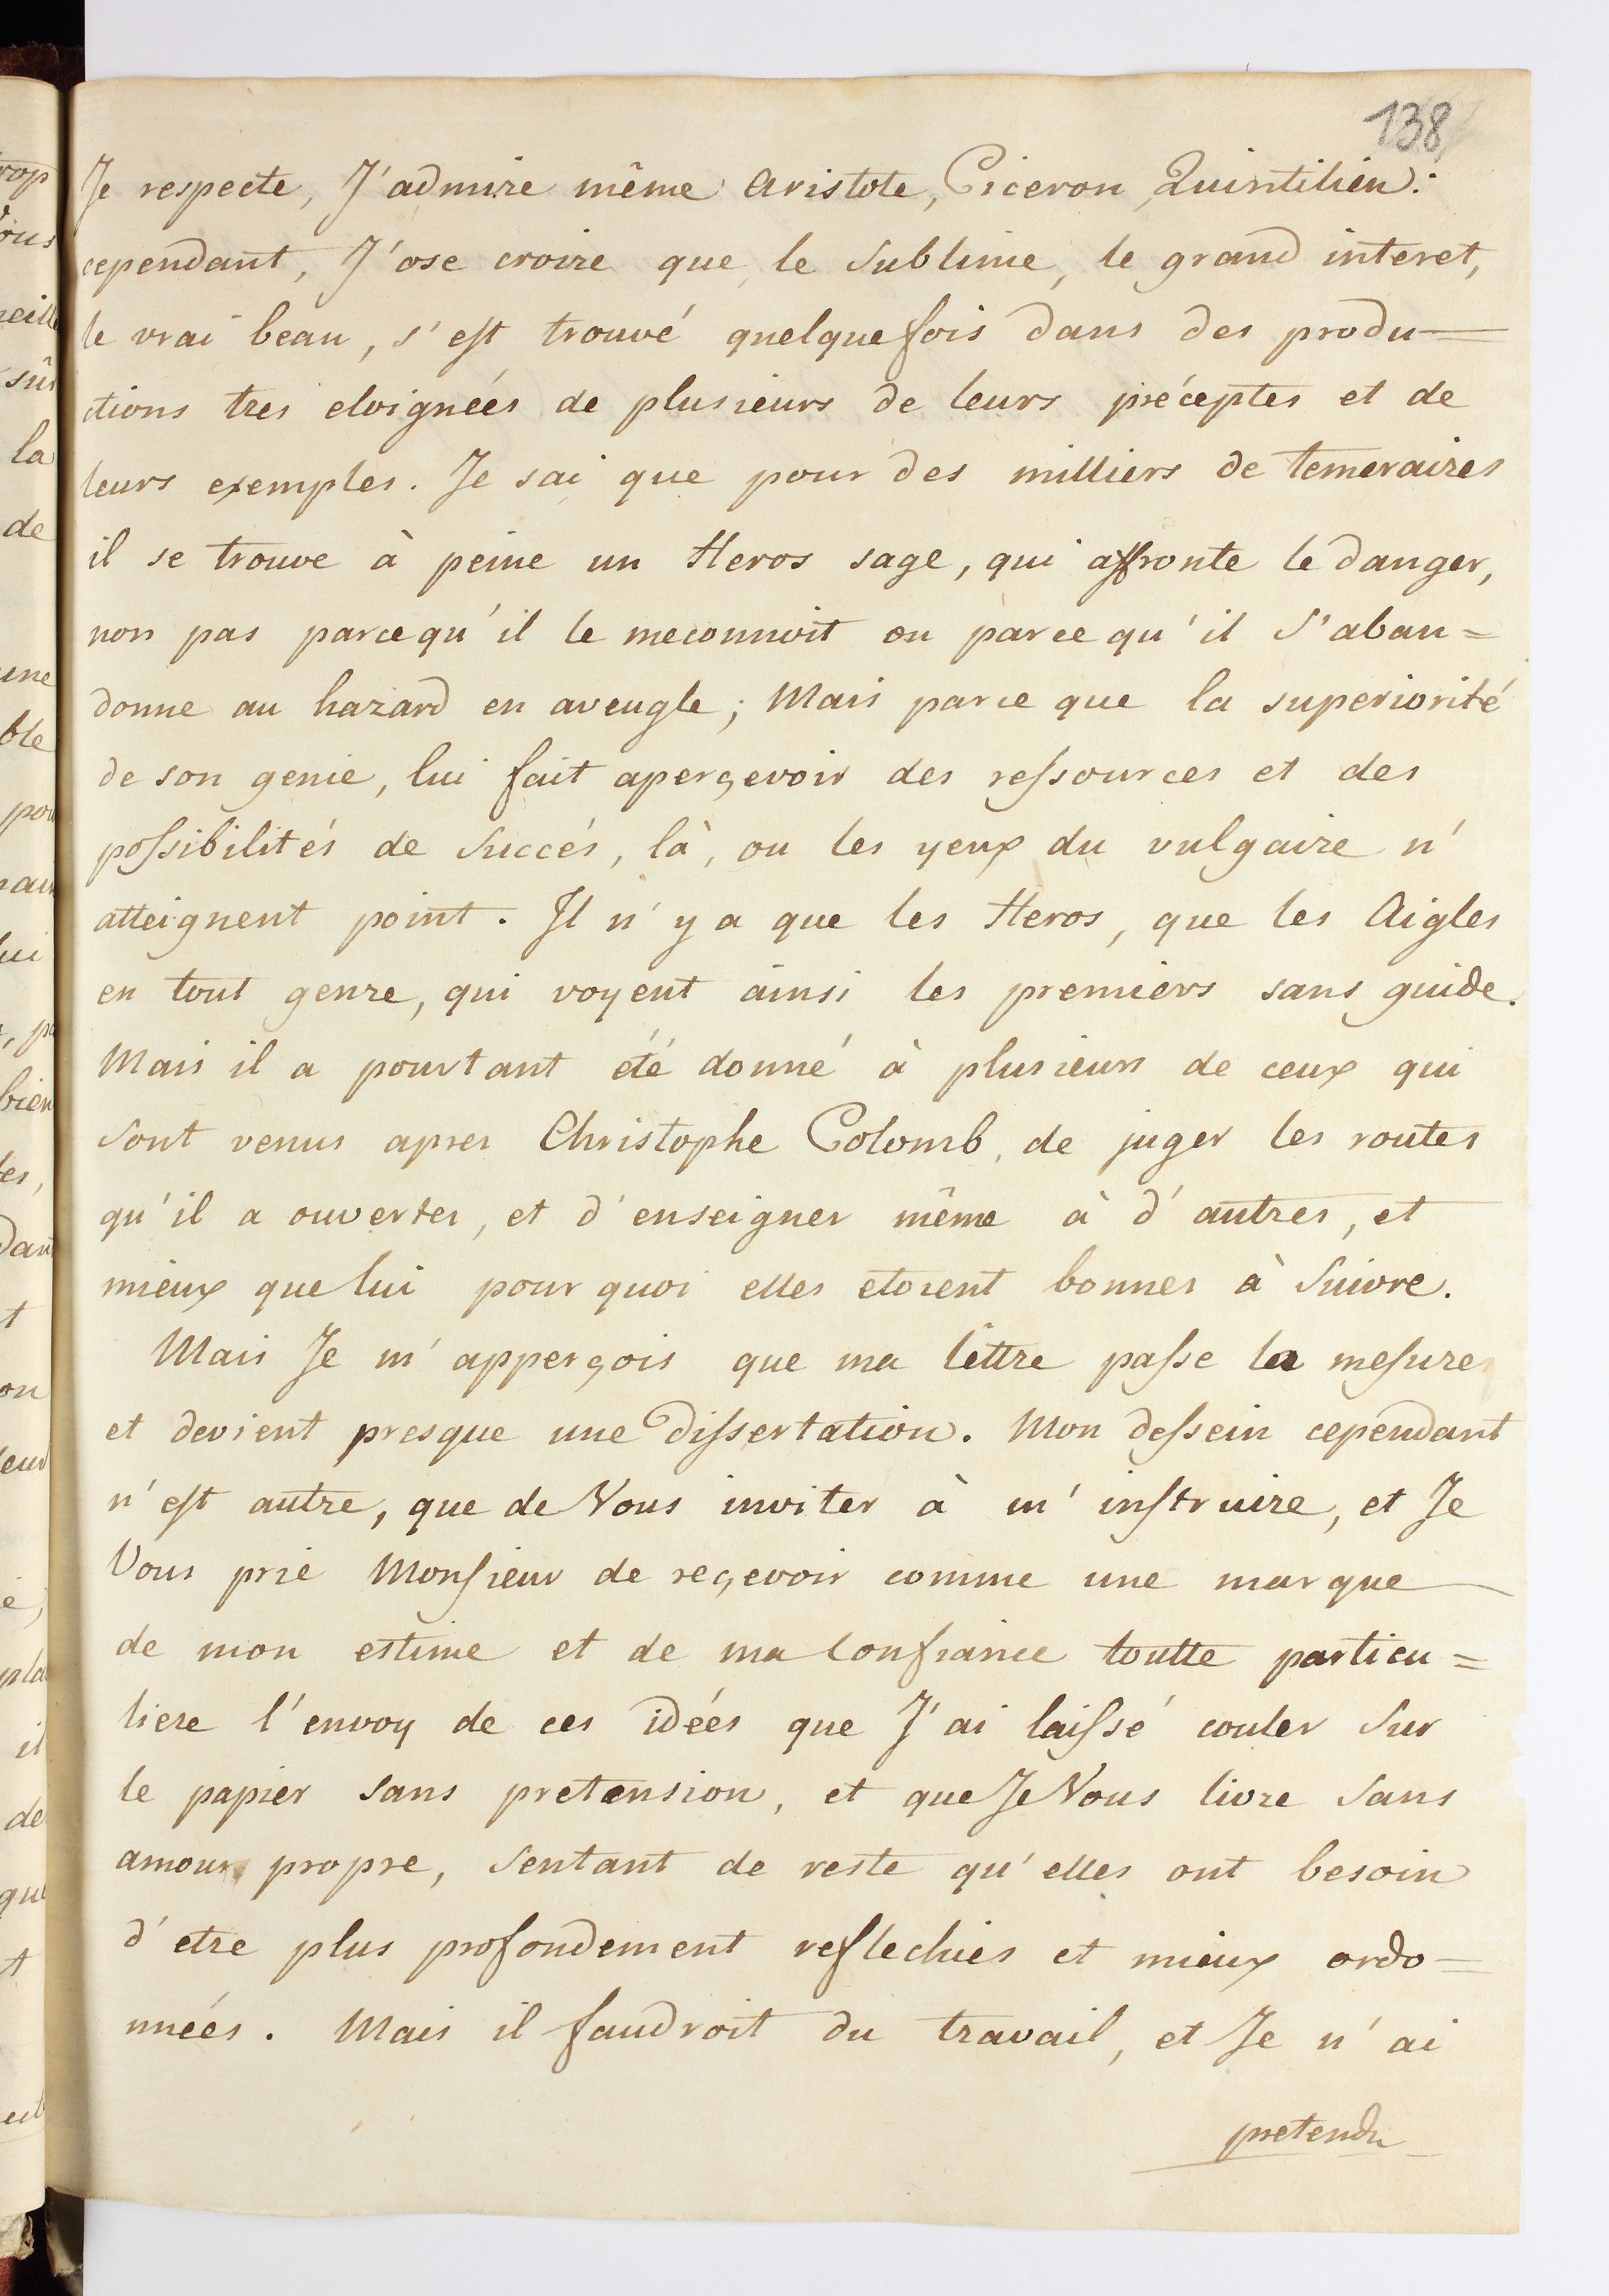 138
Je respecte, J'admire même Aristote, Ciceron, Quintilien:
cependant, J'ose croire que le Sublime, le grand interet,
le vrai beau, s'est trouvé quelquefois dans des produ=
ctions tres eloignées de plusieurs de leurs préceptes et de
leurs exemples. Je sai que pour des milliers de temeraires
il se trouve à peine un Heros sage, qui affronte le danger,
non pas parcequ'il le meconnoit ou parce qu'il S'aban=
donne au hazard en aveugle; Mais parce que la superiorité
de son genie, lui fait aperçevoir des ressources et des
possibilités de Succés, là, ou les yeux du vulgaire n'
atteignent point. Il n'y a que les Heros, que les Aigles
en tout genre, qui voyent ainsi les premiers sans guide.
Mais il a pourtant été donné à plusieurs de ceux qui
Sont venus apres Christophe Colomb, de juger les routes
qu'il a ouvertes, et d'enseigner même à d'autres, et
mieux que lui pourquoi elles etoient bonnes à Suivre.
Mais Je m'apperçois que ma lettre passe la mesure
et devient presque une Dissertation. Mon dessein cependant
n'est autre, que de Vous inviter à m'instruire, et Je
Vous prie Monsieur de reçevoir comme une marque
de mon estime et de ma Confiance toutte particu=
liere l'envoy de ces idées que J'ai laissé couler Sur
le papier Sans pretension, et que Je Vous livre Sans
amour propre, Sentant de reste qu'elles ont besoin
d'etre plus profondement reflechies et mieux ordo=
nnées. Mais il faudroit du travail, et Je n'ai
pretendu